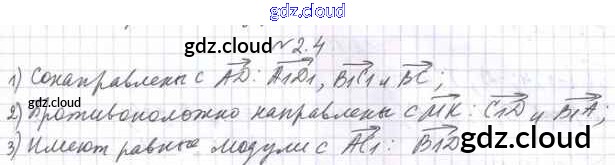 gdz.cloud
gdz.cloud
№2.4
gdz.cloud
1) Сонаправлены с AD: A1D1, B1C1 и BC;
gdz.cloud
2) Противоположно направлены с MK: C1D и B1A,
3) Имеют равные модули с AC1: B1D
gdz.cloud
gdz.cloud